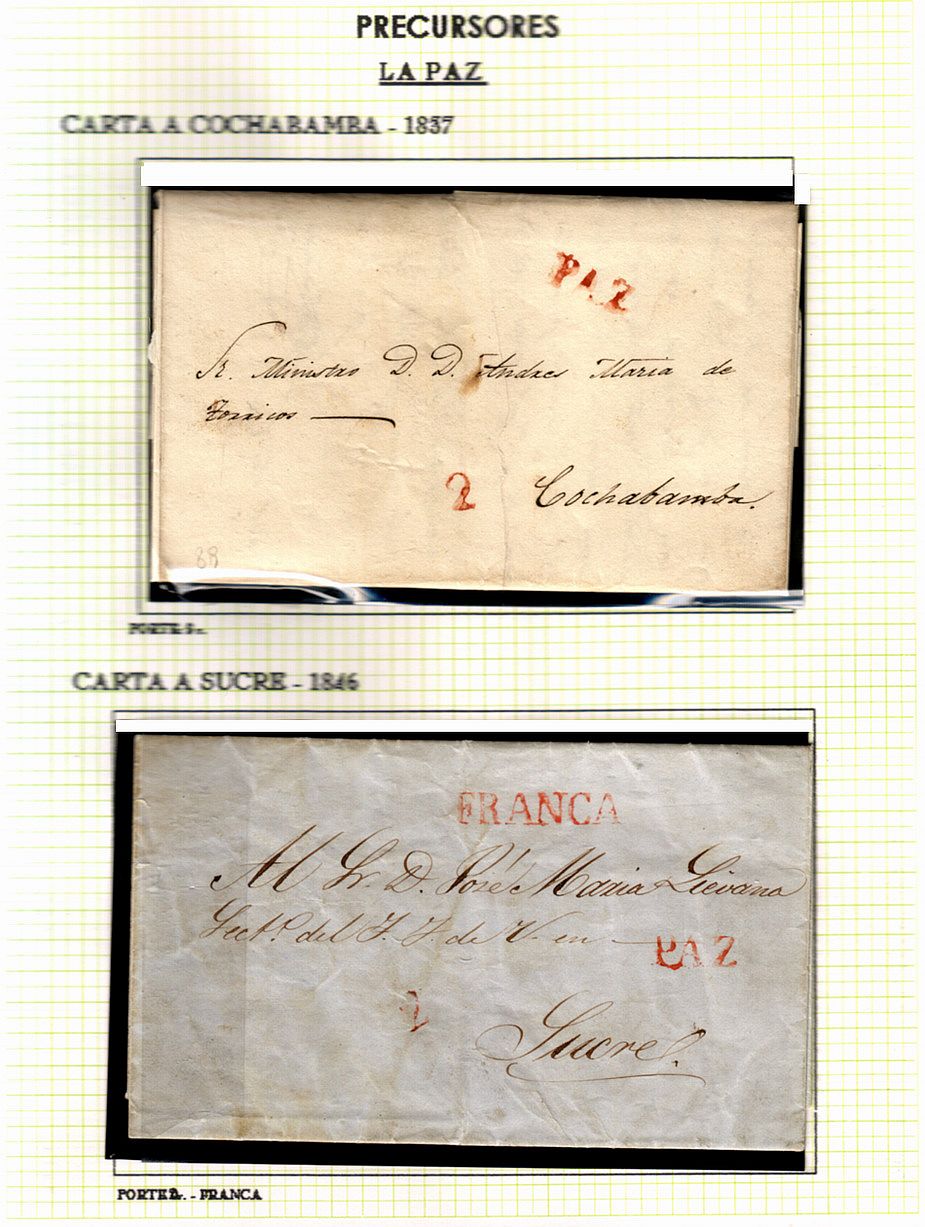 PRECURSORES
LA PAZ
CARTA A COCHABAMBA - 1837
PAZ
Sr. Ministro D. D. Andres Maria de
Torricos
2 Cochabamba.
88
PORTE
CARTA A SUCRE - 1846
FRANCA
Al Sr. D. José Maria Lievana
Sect.º del J. J. de V. en
PAZ
2
Sucre.
PORTE 2r. - FRANCA